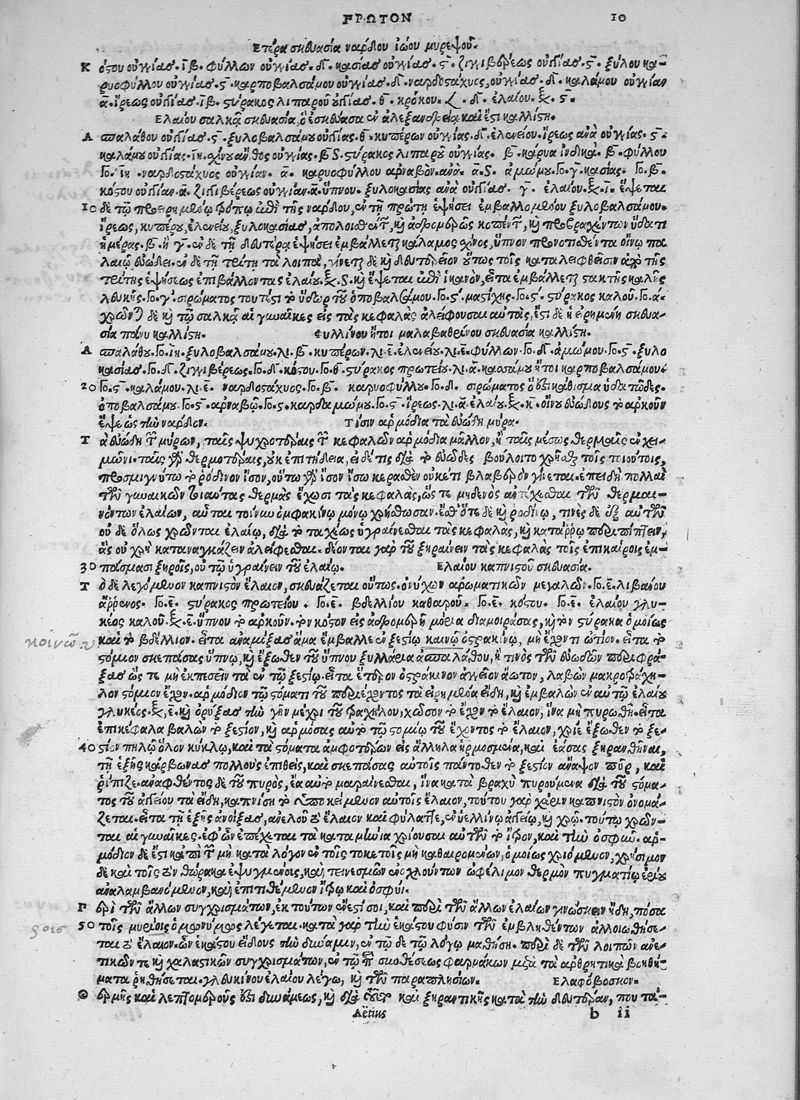 ΠΡΩΤΟΝ 10
Ἑτέρα σκευασία νάρδου ἰώου μυρεψοῦ.
Κόστου οὐγγίας. ιβ. φύλλων οὐγγίας. δ. κασίας οὐγγίας. ϛ. ζιγγιβέρεως οὐγγίας. ϛ. ξύλου κα-
ρυοφύλλου οὐγγίας. ϛ. καρποβαλσάμου οὐγγίας. δ. ναρδοστάχυος, οὐγγίας. δ. καλάμου οὐγγίαν
α. ἴρεως οὐγγίας. ιβ. στύρακος λιπαροῦ οὐγγίας. θ. κρόκου. δ. ἐλαίου. ξ. ϛ.
Ἐλαίου σαλκᾶ σκευασία, ὃ ἐσκεύασα ἐν ἀλεξανδρείᾳ καὶ ἔστι καλλίστη.
Ἀσπαλάθου οὐγγίας. ϛ. ξυλοβαλσάμου οὐγγίας. θ. κυπέρων οὐγγίας. δ. ἑλενείου. ἴρεως ἀνὰ οὐγγίας. ϛ.
καλάμου οὐγγίας. ιη. σχίνου ἄνθος οὐγγίας. β S. στύρακος λιπαροῦ οὐγγίας. β. κάρυα ἰνδικὰ. β. φύλλου
Γο. ιη. ναρδοστάχυος οὐγγίαν. α. καρυοφύλλου ἀρναβοῦ. ἀνὰ. α. S. ἀμώμου. Γο. γ. κασίας. Γο. β.
κόστου οὐγγίαν. α. ζιγιβέρεως οὐγγίαν. α. ὕπνου. ξυλοκασίας ἀνὰ οὐγγίας. γ. ἐλαίου. ξ. ι. ἕψεται
10 δὲ τῷ προειρημένῳ τρόπῳ ἐπὶ τῆς νάρδου, ἐν τῇ πρώτῃ ἑψήσει ἐμβαλλομένου ξυλοβαλσάμου.
ἴρεως, κυπέρου, ἑλενείου, ξυλοκασίας, ἀσπαλάθου, καὶ ἁδρομερῶς κοπέντων, καὶ προβραχέντων ὕδατι
ἡμέρας. β. ἢ γ. ἐν δὲ τῇ δευτέρᾳ ἑψήσει ἐμβάλλεται κάλαμος, σχῖνος, ὕπνον προνοτισθέντα οἴνῳ πα
λαιῷ εὐώδει. ἐν δὲ τῇ τρίτῃ τὰ λοιπά, γίνεται δὲ καὶ δευτερεῖον οὕτως τοῖς καταλειφθεῖσιν ἀπὸ τῆς
τρίτης ἑψήσεως ἐπιβάλλοντας ἐλαίου. ξ. S. καὶ ἕψεται ἐπὶ ἱκανόν, εἶτα ἐμβάλλεται στακτῆς καλῆς
λευκῆς. Γο. γ. σιρώματος τουτέστι τὸ ὕδωρ τοῦ ὀποβαλσάμου. Γο. ϛ. μαστίχης. Γο. ϛ. στύρακος καλοῦ. Γο. α.
χρῶνται δὲ καὶ τῷ σαλκᾷ αἱ γυναῖκες εἰς τὰς κεφαλὰς ἀλείφουσαι αὐτάς, ἔστι δὲ ἡ εἰρημένη σκευα-
σία πάνυ καλλίστη. Φυλλίνου ἤτοι μαλαβαθρίνου σκευασία καλλίστη.
Ἀσπαλάθου. Γο. ιη. ξυλοβαλσάμου. λι. β. κυπέρων. λι. ε. ἑλενείου. λι. ε. φύλλων. Γο. δ. ἀμώμου. Γο. ϛ. ξυλο
κασίας. Γο. δ. ζιγγιβέρεως. Γο. δ. κόστου. Γο. θ. στύρακος πρωτείου. λι. α. κασάμου ἤτοι καρποβαλσάμου.
20 Γο. ϛ. καλάμου. λι. ε. ναρδοστάχυος. Γο. β. καρυοφύλλου. Γο. δ. σιρώματος ὅ ἐστι κάθισμα ὑδατῶδες.
ὀποβαλσάμου. Γο. ϛ. ἀρναβῶ. Γο. ϛ. καρδαμώμου. Γο. ϛ. ἴρεως. λι. α. ἐλαίου. ξ. κ. οἴνου εὐώδους τὸ ἀρκοῦν
ἕψε ὡς τὴν νάρδον. Τίσιν ἁρμόδια τὰ εὐώδη μύρα.
Τὰ εὐώδη τῶν μύρων, ταῖς ψυχροτέραις τῶν κεφαλῶν ἁρμόδια μᾶλλον, ἢ ταῖς μέσως θερμαῖς ἐν χει-
μῶνι. ταῖς γὰρ θερμοτέραις, οὐκ ἐπιτήδεια, εἰ δέ τις διὰ τὸ εὐῶδες βούλοιτο χρῆσθαι τοῖς τοιούτοις,
προσμιγνύτω τὸ ῥόδινον ἴσον, οὕτω γὰρ ἴσον ἴσῳ κερασθὲν οὐκέτι βλαβερὸν γίνεται. ἐπειδὴ πολλαὶ
τῶν γυναικῶν τοιαύτας θερμὰς ἔχουσι τὰς κεφαλάς, ὥς τε μηδενὸς ἀνέχεσθαι τῶν θερμαι-
νόντων ἐλαίων, αὗται τοίνυν ὀμφακίνῳ μόνῳ χρήσθωσαν. ἔσθ' ὅτε δὲ καὶ ῥοδίνῳ, τινὲς δὲ ἐξ αὐτῶν
οὐδὲ ὅλως χρῶνται ἐλαίῳ, διὰ τὸ ταχέως ὑγραίνεσθαι τὰς κεφαλάς, καὶ κατάρρῳ περιπίπτειν,
ἃς οὐ χρὴ καταναγκάζειν ἀλείφεσθαι. δέονται γὰρ τοῦ ξηραίνειν τὰς κεφαλὰς τοῖς ἐπικαίροις ἐμ-
30 πάσμασι ξηροῖς, οὐ τῷ ὑγραίνειν τοῦ ἐλαίου. Ἐλαίου καπνιστοῦ σκευασία.
Τὸ δὲ λεγόμενον καπνιστὸν ἔλαιον, σκευάζεται οὕτως. ὀνύχων ἀρωματικῶν μεγάλων. Γο. ε. λιβάνου
ἄρρενος. Γο. ε. στύρακος πρωτείου. Γο. ε. βδελλίου καθαροῦ. Γο. ε. κόστου. Γο. ε. ἐλαίου γλυ-
κέος καλοῦ. ξ. ε. ὕπνου τὸ ἀρκοῦν. τὸν κόστον εἰς ἁδρομερῆ μόρια διαμοιράσας, καὶ τὸν στύρακα ὁμοίως
κοινῷ καὶ τὸ βδέλλιον. εἶτα ἀναμίξας ἅμα ἔμβαλλε ἐν ξεστίῳ καινῷ ὀστρακίνῳ, μὴ ἔχοντι ὠτίον. εἶτα τὸ
στόμιον σκεπάσας ὕπνῳ, καὶ ἔξωθεν τοῦ ὕπνου ξυλλάρια ἀσπαλάθου, ἤ τινος τῶν εὐωδῶν περιφρά-
ξας ὥς τε μὴ ἐκπεσεῖν τὰ ἐν τῷ ξεστίῳ. εἶτα ἕτερον ὀστράκινον ἀγγεῖον ἄωτον, λαβὼν μακροτράχη-
λον στόμιον ἔχον. ἁρμόδιον τῷ στόματι τοῦ περιέχοντος τὰ εἰρημένα εἴδη, καὶ ἐμβαλὼν ἐν αὐτῷ ἐλαίου
γλυκέος. ξ. ε. καὶ ὀρύξας τὴν γῆν μέχρι τοῦ τραχήλου, χῶσον τὸ ἔχον τὸ ἔλαιον, ἵνα μὴ πυρωθῇ. εἶτα
ἐπικέφαλα βαλὼν τὸ ξεστίον, καὶ ἁρμόσας αὐτῷ τῷ στομίῳ τοῦ ἔχοντος τὸ ἔλαιον, χρῖε ἔξωθεν τὸ ξε-
40 στίον πηλῷ ὅλον κύκλῳ, κατὰ τὰ στόματα ἀμφοτέρων εἰς ἄλληλα ἡρμοσμένα, καὶ ἐάσας ξηρανθῆναι,
τῇ ἑξῆς κάρβωνας πολλοὺς ἐπιθείς, καὶ σκεπάσας αὐτοῖς πάντοθεν τὸ ξεστίον ἄναψον πῦρ, καὶ
ῥίπιζε. ἀναφθέντος δὲ τοῦ πυρὸς, ἔα αὐτὸ μαραίνεσθαι, ἵνα κατὰ βραχὺ πυρούμενα διὰ τοῦ στόμα-
τος τοῦ ἀγγείου τὰ εἴδη, καπνίσῃ τὸ ὑποκείμενον αὐτοῖς ἔλαιον, τούτου γὰρ χάριν καπνιστὸν ὀνομά-
ζεται. εἶτα τῇ ἑξῆς ἀνοίξας, ἀνελοῦ τὸ ἔλαιον καὶ φύλαττε, ἐν ὑελίνῳ ἀγγείῳ, καὶ χρῶ. τούτῳ χρῶν-
ται αἱ γυναῖκες. ἐφ' ὧν ἐπέχεται τὰ καταμήνια χρίουσαι αὐτῶν τὸ ἦτρον, καὶ τὴν ὀσφύν. ἁρ-
μόδιον δέ ἐστι καὶ ἐπὶ τῶν μὴ κατὰ λόγον ἐν τοῖς τοκετοῖς μὴ καθαιρομένων, ὁμοίως χριόμενον, χρήσιμον
δὲ καὶ τοῖς τὸν θώρακα ἐψυγμένοις, καὶ τεινεσμῶν ἐνοχλούντων ὠφέλιμον θερμὸν πυγματίῳ ἐρίου
ἀναλαμβανόμενον, καὶ ἐπιτιθέμενον ἤτρῳ καὶ ὀσφύι.
Περὶ τῶν ἄλλων συγχρισμάτων, ἐκ τούτων ἔνεστί σοι, καὶ περὶ τῶν ἄλλων ἐλαίων γινώσκειν ἤδη, πόσα
50 τοῖς μυρίοις ὁμώνυμος λέγεται. κατὰ γὰρ τὴν ἑκάστου φύσιν τῶν ἐμβληθέντων ἀλλοιωθήσε-
ται τὸ ἔλαιον. ὧν ἑκάστου εἴδους τὴν δύναμιν, ἐν τῷδε τῷ λόγῳ μαθήσῃ. περὶ δὲ τῶν λοιπῶν ἀνε-
τικῶν τε καὶ χαλαστικῶν συγχρισμάτων, ἐν τῷ περὶ συνθέσεως φαρμάκων μετὰ τὰ ἀρθριτικὰ βοηθή-
ματα ῥηθήσεται. γλυκίνου ἐλαίου λέγω, καὶ τῶν παραπλησίων. Ἐλαφόβοσκον.
Θερμῆς καὶ λεπτομεροῦς ἐστι δυνάμεως, καὶ διὰ τοῦτο καὶ ξηραντικῆς κατὰ τὴν δευτέραν, που τά-
Aetius b ii